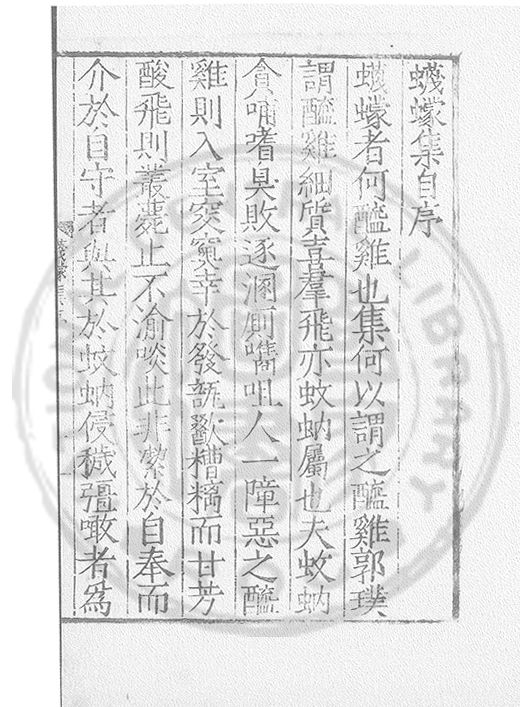 蠛蠓集自序
蠛蠓者何醯雞也集何以謂之醯雞郭璞
謂醯雞細質喜羣飛亦蚊蚋屬也夫蚊蚋
貪哺嗜臭敗逐溷厠噆咀人一障惡之醯
雞則入室窔竅幸於發瓿歠糟糟而甘芳
酸飛則叢薨止不渝啖此非潔於自奉而
介於自守者與其於蚊蚋侵穢彊噉者為
蠛蠓